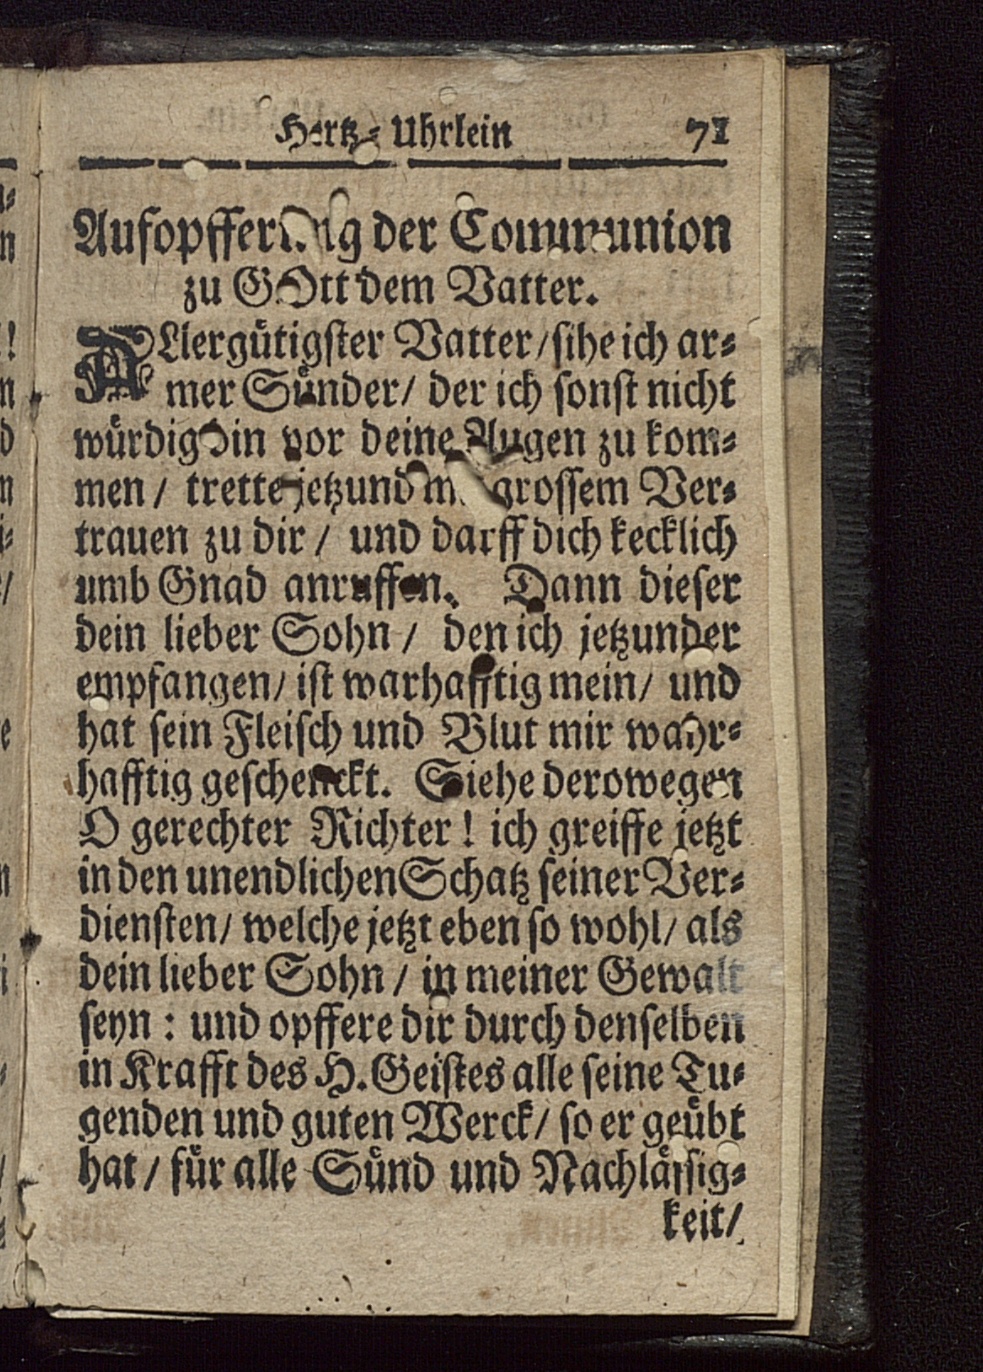 Hertz-Uhrlein 71
Aufopfferung der Communion
zu GOtt dem Vatter.
ALlergütigster Vatter/ sihe ich ar-
mer Sünder/ der ich sonst nicht
würdig bin vor deine Augen zu kom-
men/ trette jetzund mit grossem Ver-
trauen zu dir/ und darff dich kecklich
umb Gnad anruffen. Dann dieser
dein lieber Sohn/ den ich jetzunder
empfangen/ ist warhafftig mein/ und
hat sein Fleisch und Blut mir wahr-
hafftig geschenckt. Siehe derowegen
O gerechter Richter! ich greiffe jetzt
in den unendlichen Schatz seiner Ver-
diensten/ welche jetzt eben so wohl/ als
dein lieber Sohn/ in meiner Gewalt
seyn: und opffere dir durch denselben
in Krafft des H. Geistes alle seine Tu-
genden und guten Werck/ so er geübt
hat/ für alle Sünd und Nachlässig-
keit/